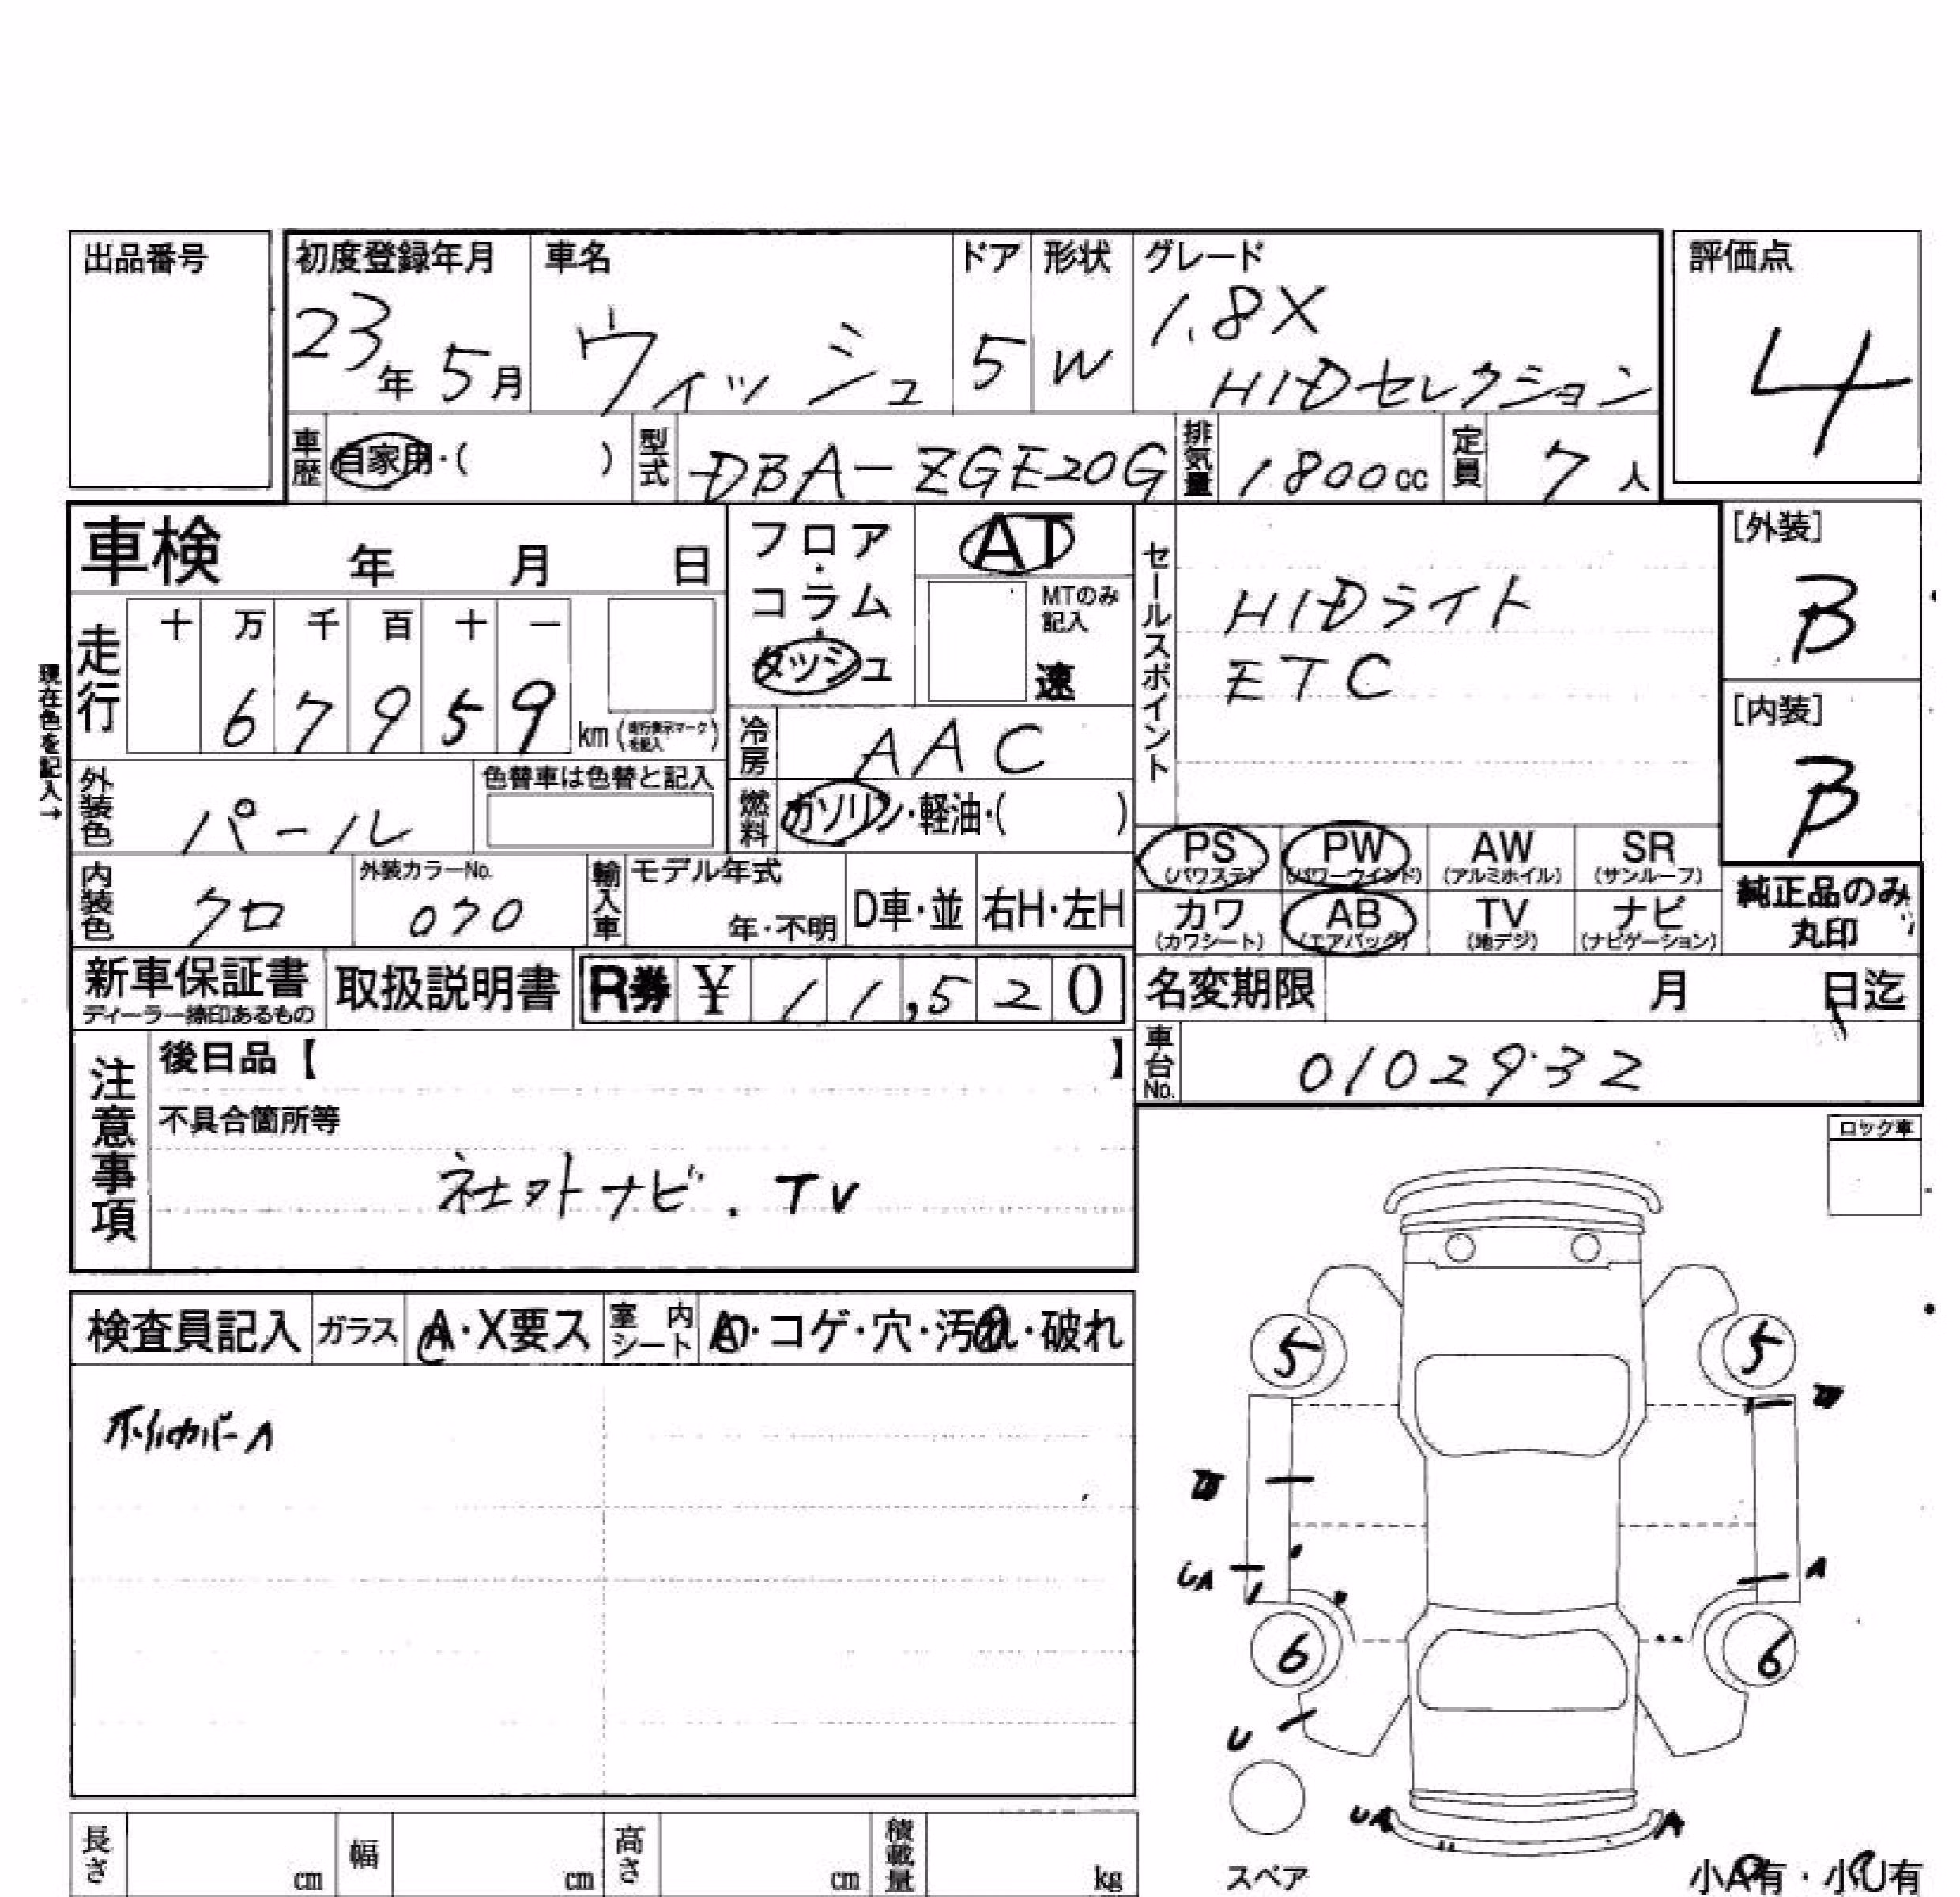 出品番号
初度登録年月 車名 ドア 形状 グレード 評価点
23年5月 ウィッシュ 5 W 1.8X
HIDセレクション
4
車歴 自家用・( ) 型式 DBA-ZGE20G 排気量 1800cc 定員 7人
車検 年 月 日
フロア・コラム・ダッシュ
AT
MTのみ記入
速
セールスポイント
HIDライト
ETC
[外装]
B
[内装]
B
現在色を記入→
走行 十 万 千 百 十 一
67959 km (走行表示マークを記入)
冷房 AAC
外装色 パール 色替車は色替と記入
燃料 ガソリン・軽油・( )
PS (パワステ) PW (パワーウインド) AW (アルミホイル) SR (サンルーフ)
カワ (カワシート) AB (エアバッグ) TV (地デジ) ナビ (ナビゲーション)
純正品のみ
丸印
内装色 クロ 外装カラーNo. 070 輸入車 モデル年式 年・不明 D車・並 右H・左H
新車保証書 取扱説明書 R券 ¥ 11,520
ディーラー捺印あるもの
名変期限 月 日迄
車台No. 0102932
注意事項
後日品【 】
不具合箇所等
社外ナビ.TV
ロック車
検査員記入 ガラス A・X要ス 室内シート ・コゲ・穴・汚れ・破れ
ホイルカバーA
5 5
UA A
6 6
U
UA A
スペア
小A有・小U有
長さ cm 幅 cm 高さ cm 積載量 kg